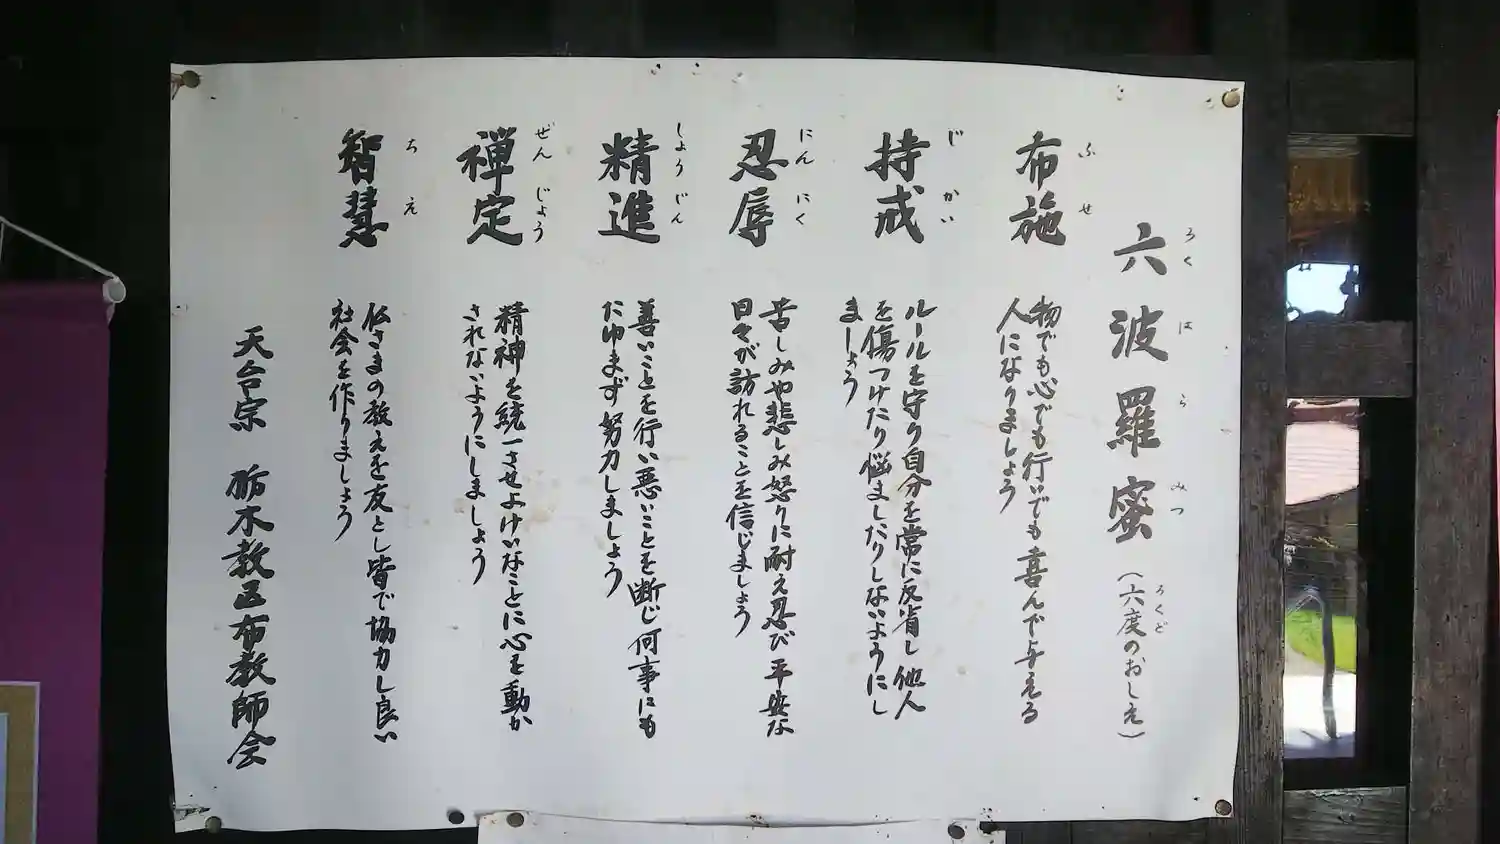 六波羅蜜（六度のおしえ）
ろくはらみつ
ろくど
布施
ふせ
物でも心でも行いでも喜んで与える
人になりましょう
持戒
じかい
ルールを守り自分を常に反省し他人
を傷つけたり悩ましたりしないようにし
ましょう
忍辱
にんにく
苦しみや悲しみ怒りに耐え忍び平安な
日々が訪れることを信じましょう
精進
しょうじん
善いことを行い悪いことを断じ何事にも
たゆまず努力しましょう
禅定
ぜんじょう
精神を統一させよけいなことに心を動か
されないようにしましょう
智慧
ちえ
仏さまの教えを友とし皆で協力し良い
社会を作りましょう
天台宗　栃木教区布教師会